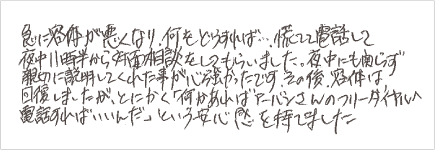 急に容体が悪くなり、何をどうすれば…、慌てて電話して
夜中11時半から対面相談をしてもらいました。夜中にも関らず
親切に説明してくれた事が心強かったです。その後、容体は
回復しましたが、とにかく「何かあればアーバンさんのフリーダイヤルへ
電話すればいいんだ」という安心感を持てました